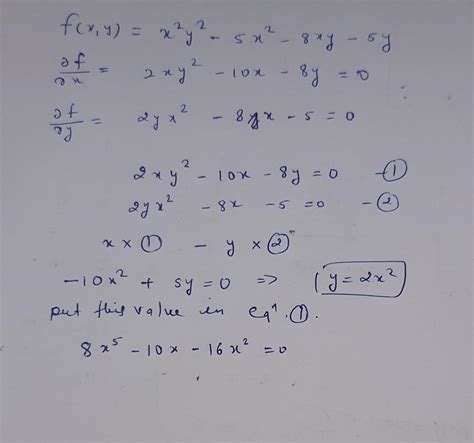 f(x,y) = x²y² - 5x² - 8xy - 5y
∂f/∂x = 2xy² - 10x - 8y = 0
∂f/∂y = 2yx² - 8x - 5 = 0
2xy² - 10x - 8y = 0 -①
2yx² - 8x - 5 = 0 -②
x × ① - y × ②
-10x² + 5y = 0 => y = 2x²
put this value in eqⁿ.①.
8x⁵ - 10x - 16x² = 0